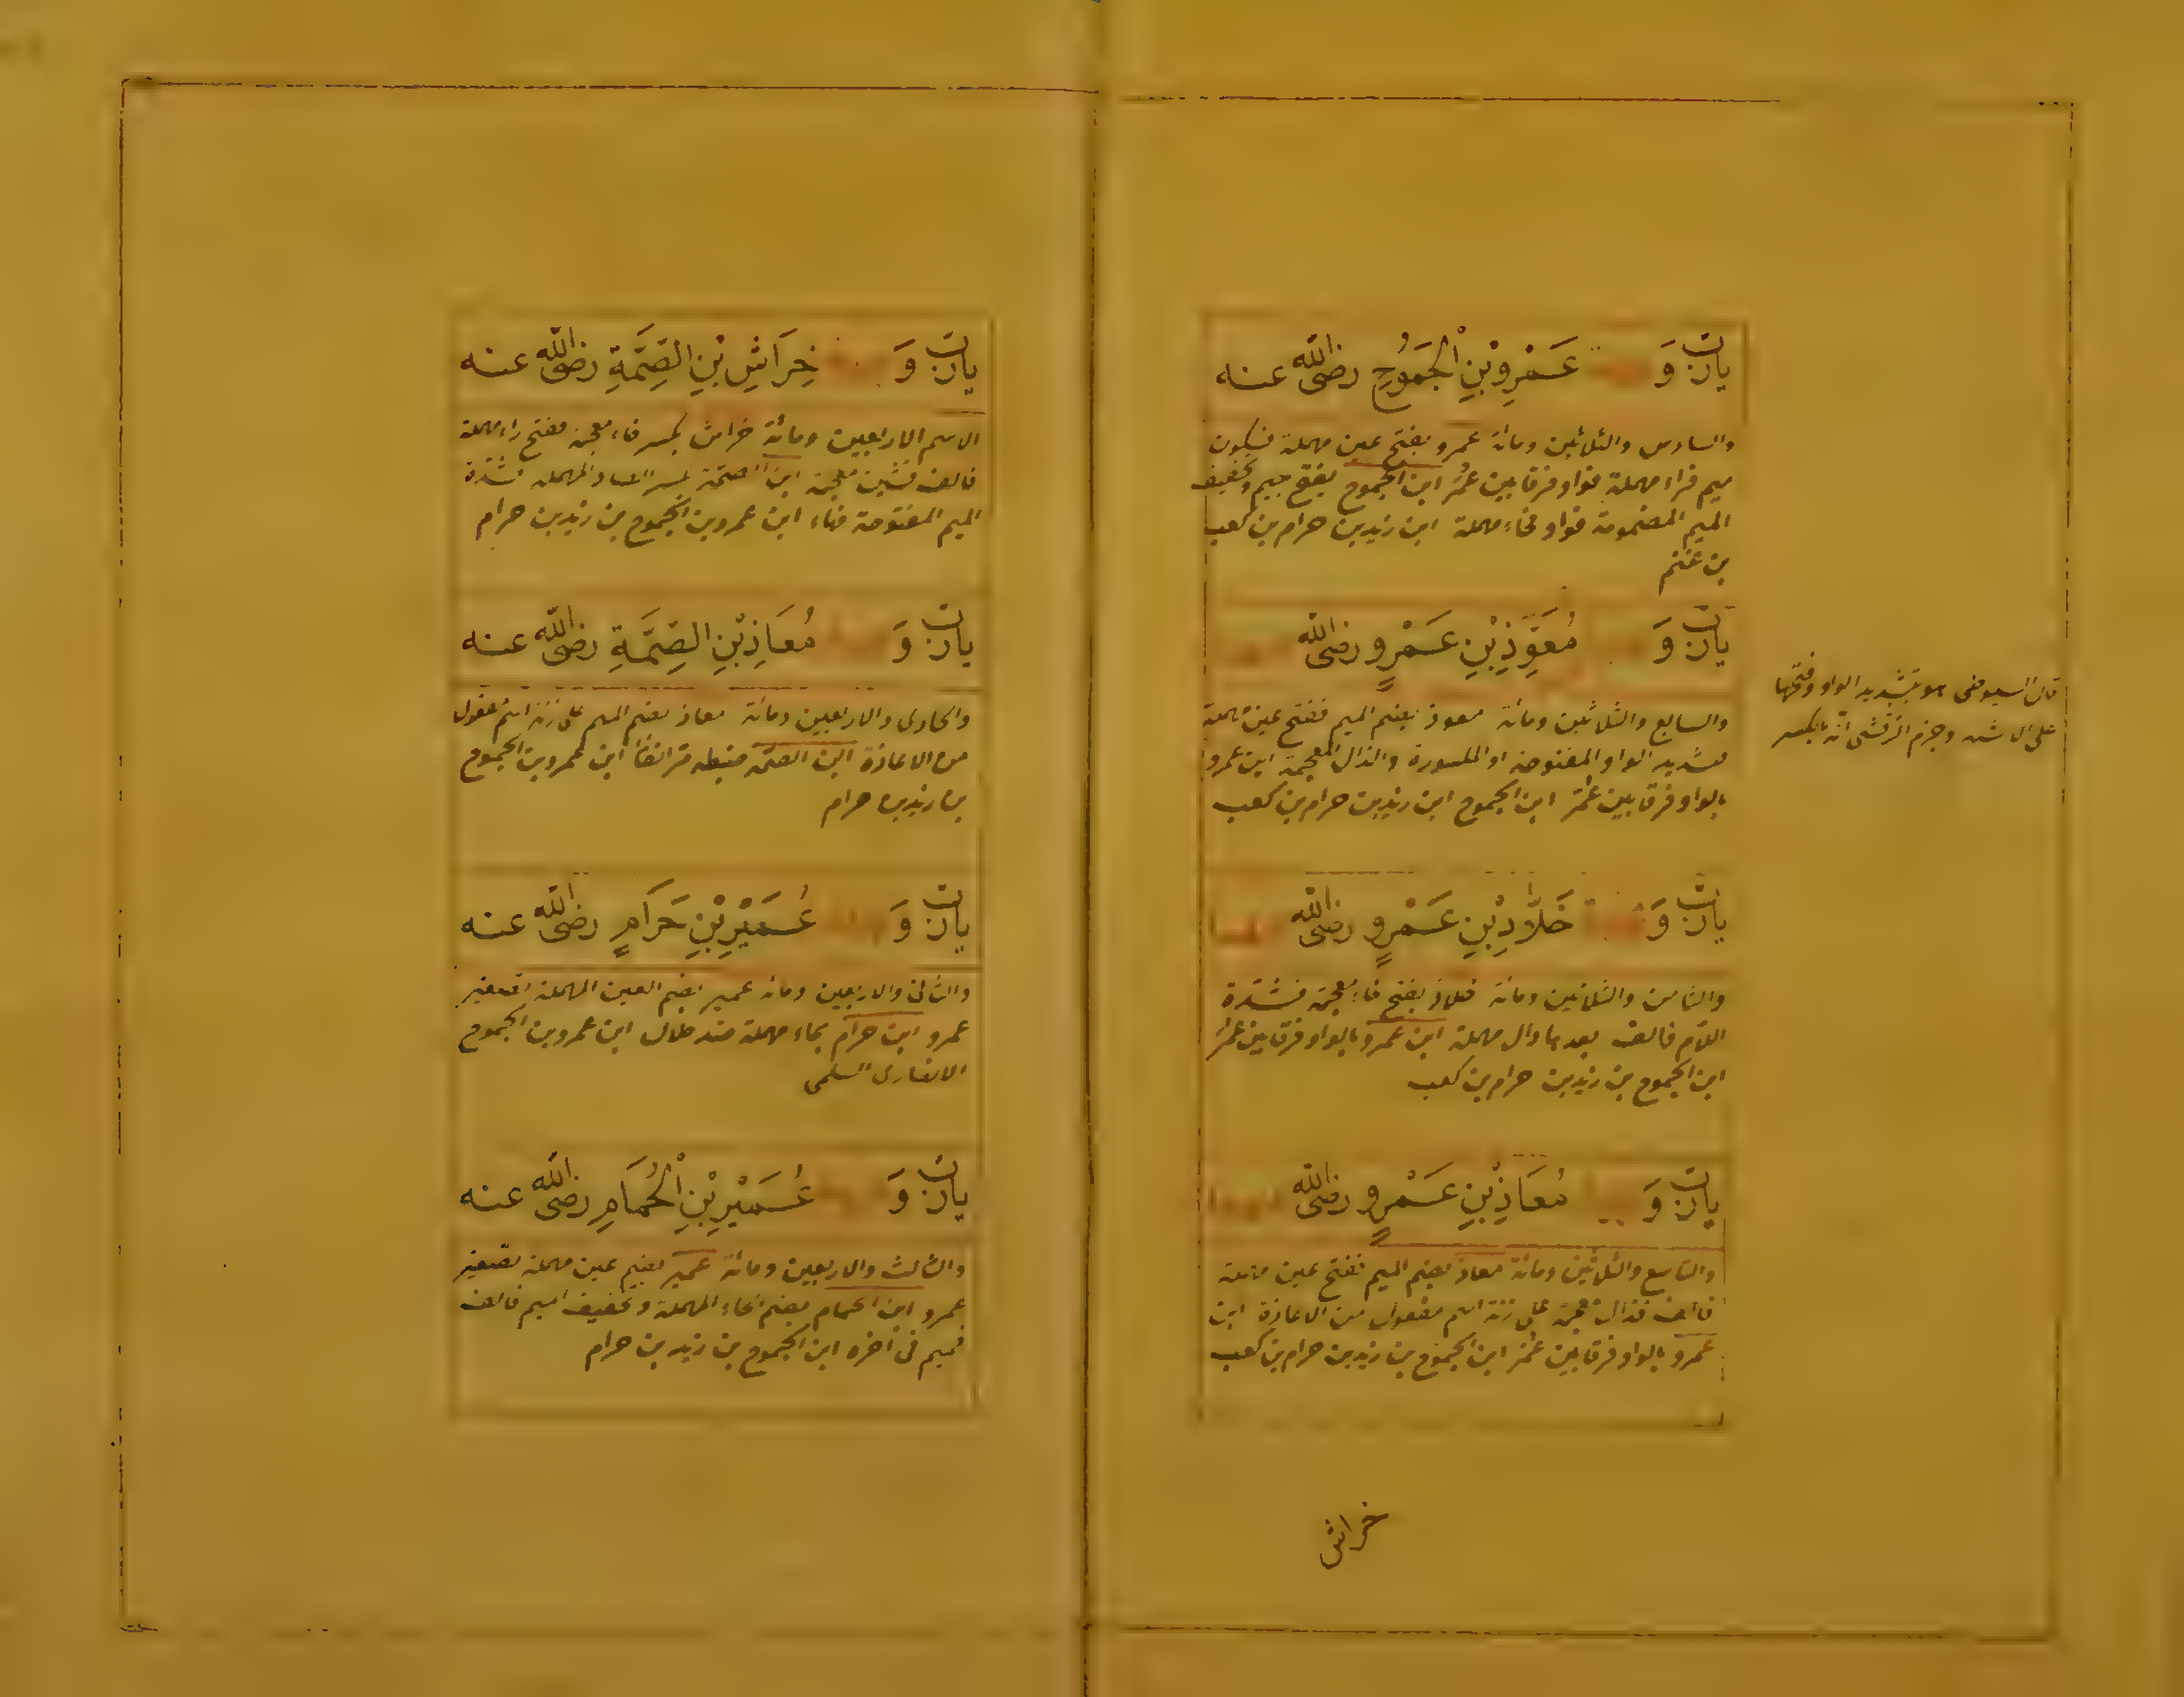 يارب وَ عَمْرِو بْنِ الْجَمُوحِ رضى الله عنه
والسادس والثلاثين ومائة عمرو بفتح عين مهملة فسكون
ميم فراء مهملة فواو فرقا بين عُمَر ابن الجموح بفتح جيم وتخفيف
الميم المضمومة فواو فحاء مهملة ابن زيد بن حرام بن كعب
بن غنم
يارب وَ مُعَوَّذِ بْنِ عَمْرٍو رضى الله
والسابع والثلاثين ومائة معوذ بضم الميم ففتح عين مهملة
فتشديد الواو المفتوحة او المكسورة والذال المعجمة ابن عمرو
بالواو فرقا بين عُمَر ابن الجموح ابن زيد بن حرام بن كعب
قال السيوطى هو بتشديد الواو وفتحها
على الاشهر وجزم الزركشى انه بالكسر
يارب وَ خَلَّادِ بْنِ عَمْرٍو رضى الله
والثامن والثلاثين ومائة خلاد بفتح خاء معجمة فشدة
اللام فالف بعدها دال مهملة ابن عمرو بالواو فرقا بين عُمَر
ابن الجموح بن زيد بن حرام بن كعب
يارب وَ مُعَاذِ بْنِ عَمْرٍو رضى الله
والتاسع والثلاثين ومائة معاذ بضم الميم ففتح عين مهملة
فالف فذال معجمة على زنة اسم مفعول من الاعاذة ابن
عمرو بالواو فرقا بين عُمَر ابن الجموح بن زيد بن حرام بن كعب
خراش
يارب وَ خِرَاشِ بْنِ الصِّمَّةِ رضى الله عنه
الاسم الاربعين ومائة خراش بكسر خاء معجمة ففتح راء مهملة
فالف فشين معجمة ابن الصمة بكسر الصاد المهملة فشدة
الميم المفتوحة فهاء ابن عمرو بن الجموح بن زيد بن حرام
يارب وَ مُعَاذِ بْنِ الصِّمَّةِ رضى الله عنه
والحادى والاربعين ومائة معاذ بضم الميم على زنة اسم مفعول
من الاعاذة ابن الصمة ضبطه مر انفا ابن عمرو بن الجموح
بن زيد بن حرام
يارب وَ عُمَيْرِ بْنِ حَرَامٍ رضى الله عنه
والثانى والاربعين ومائة عمير بضم العين المهملة تصغير
عمرو ابن حرام بحاء مهملة ضد حلال ابن عمرو بن الجموح
الانصارى السلمى
يارب وَ عُمَيْرِ بْنِ الْحُمَامِ رضى الله عنه
والثالث والاربعين ومائة عمير بضم عين مهملة تصغير
عمرو ابن الحمام بضم الحاء المهملة وتخفيف الميم فالف
فميم فى اخره ابن الجموح بن زيد بن حرام